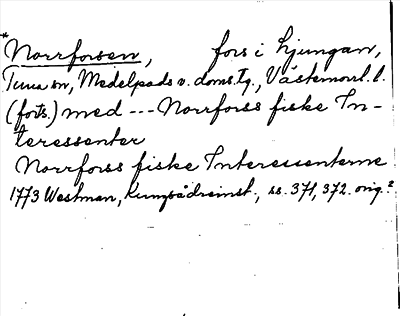 *Norrforsen, fors i Ljungan,
Tuna sn, Medelpads v. doms.tg., Västernorrl. l.
(forts.) med --- Norrforss fiske In-
teressenter
Norrforss fiske Interessenterne
1773 Westman, Kungsådreinst., ss. 371, 372. orig.?